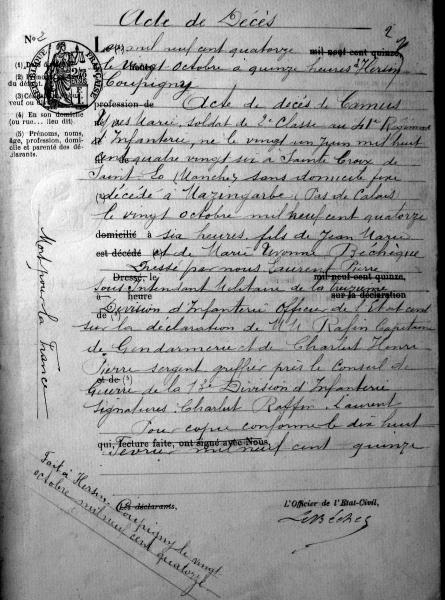 Acte de Décès
No 2
2
L'an mil neuf cent quatorze mil neuf cent quinze,
le vingt octobre à quinze heures à Hersin
Coupigny
profession de Acte de décès de Camus
Yves Marie, soldat de 2e Classe au 41e Régiment
d'Infanterie, né le vingt un juin mil huit
cent quatre vingt six à Sainte Croix de
Saint Lo (Manche) sans domicile fixe
décédé à Mazingarbe (Pas de Calais)
le vingt octobre mil neuf cent quatorze
domicilié à six heures, fils de Jean Marie
est décédé et de Marie Yvonne
Dressé par nous Laurent Pierre
Dressé, le mil neuf cent quinze,
sous intendant Militaire de la treizième
à heure sur la déclaration
Division d'Infanterie Officier de l'Etat civil
de (1)
sur la déclaration de M.M. Raffin Capitaine
de Gendarmerie et de Charlut Henri
Pierre sergent greffier près le Conseil de
et de (1)
Guerre de la 13e Division d'Infanterie
Signatures: Charlut Raffin Laurent
Pour copie conforme le dix huit
qui, lecture faite, ont signé avec Nous.
février mil neuf cent quinze
RÉPUBLIQUE FRANÇAISE
(4) En son domicile
(ou rue... lieu dit).
(5) Prénoms, noms,
âge, profession, domicile
et parenté des déclarants.
Mort pour la France
Fait à Hersin Coupigny le vingt
octobre mil neuf cent quatorze
Les déclarants,
L'Officier de l'Etat-Civil,